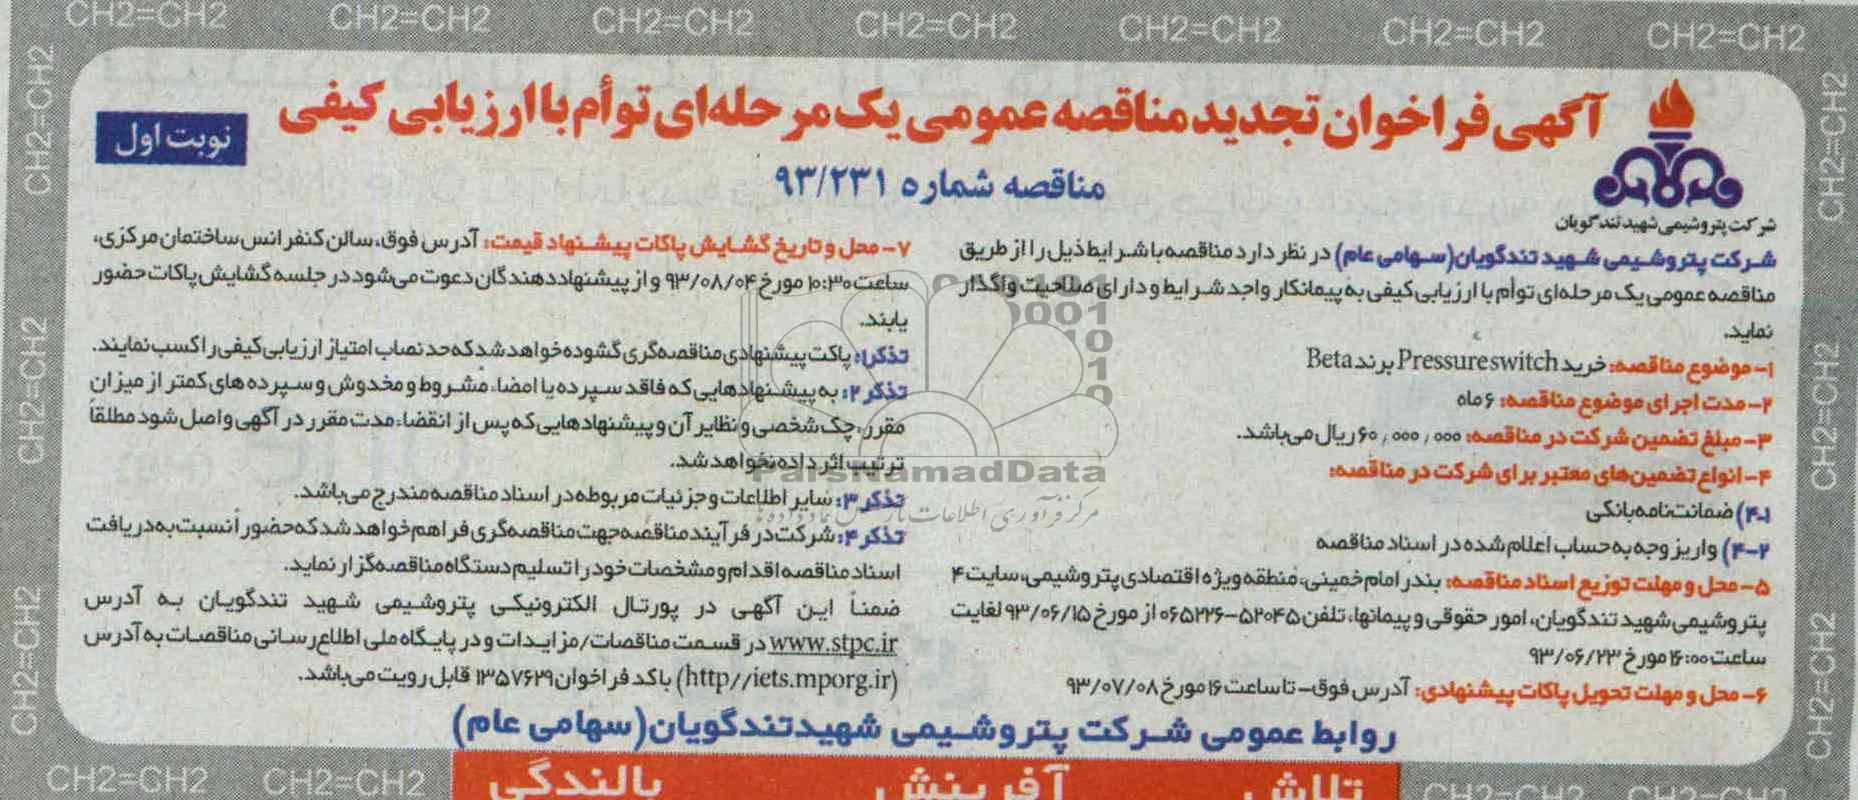 CH2=CH2 CH2=CH2 CH2=CH2 CH2=CH2 CH2=CH2 CH2=CH2 CH2=CH2
آگهی فراخوان تجدید مناقصه عمومی یک مرحله‌ای توأم با ارزیابی کیفی
نوبت اول
مناقصه شماره ۹۳/۲۳۱
شرکت پتروشیمی شهید تندگویان
شرکت پتروشیمی شهید تندگویان(سهامی عام) در نظر دارد مناقصه با شرایط ذیل را از طریق
مناقصه عمومی یک مرحله‌ای توأم با ارزیابی کیفی به پیمانکار واجد شرایط و دارای صلاحیت واگذار
نماید.
۱- موضوع مناقصه: خرید Pressure switch برند Beta
۲- مدت اجرای موضوع مناقصه: ۶ ماه
۳- مبلغ تضمین شرکت در مناقصه: ۶۰٫۰۰۰٫۰۰۰ ریال می‌باشد.
۴- انواع تضمین‌های معتبر برای شرکت در مناقصه:
۴-۱) ضمانت‌نامه بانکی
۴-۲) واریز وجه به حساب اعلام شده در اسناد مناقصه
۵- محل و مهلت توزیع اسناد مناقصه: بندر امام خمینی، منطقه ویژه اقتصادی پتروشیمی، سایت ۴
پتروشیمی شهید تندگویان، امور حقوقی و پیمانها، تلفن ۵۲۰۴۵-۰۶۵۲۲۶ از مورخ ۹۳/۰۶/۱۵ لغایت
ساعت ۱۶:۰۰ مورخ ۹۳/۰۶/۲۳
۶- محل و مهلت تحویل پاکات پیشنهادی: آدرس فوق- تا ساعت ۱۶ مورخ ۹۳/۰۷/۰۸
۷- محل و تاریخ گشایش پاکات پیشنهاد قیمت: آدرس فوق، سالن کنفرانس ساختمان مرکزی،
ساعت ۱۰:۳۰ مورخ ۹۳/۰۸/۰۴ و از پیشنهاددهندگان دعوت می‌شود در جلسه گشایش پاکات حضور
یابند.
تذکر۱: پاکت پیشنهادی مناقصه‌گری گشوده خواهد شد که حد نصاب امتیاز ارزیابی کیفی را کسب نمایند.
تذکر ۲: به پیشنهادهایی که فاقد سپرده یا امضاء، مشروط و مخدوش و سپرده‌های کمتر از میزان
مقرر، چک شخصی و نظایر آن و پیشنهادهایی که پس از انقضاء مدت مقرر در آگهی واصل شود مطلقاً
ترتیب اثر داده نخواهد شد.
تذکر ۳: سایر اطلاعات و جزئیات مربوطه در اسناد مناقصه مندرج می‌باشد.
تذکر ۴: شرکت در فرآیند مناقصه جهت مناقصه‌گری فراهم خواهد شد که حضوراً نسبت به دریافت
اسناد مناقصه اقدام و مشخصات خود را تسلیم دستگاه مناقصه‌گزار نماید.
ضمناً این آگهی در پورتال الکترونیکی پتروشیمی شهید تندگویان به آدرس
www.stpc.ir در قسمت مناقصات/مزایدات و در پایگاه ملی اطلاع‌رسانی مناقصات به آدرس
(http//iets.mporg.ir) با کد فراخوان ۱۳۵۷۶۲۹ قابل رویت می‌باشد.
ParsNamadData
مرکز فرآوری اطلاعات پارس نماد داده ها
روابط عمومی شرکت پتروشیمی شهیدتندگویان(سهامی عام)
تلاش آفرینش بالندگی
CH2=CH2 CH2=CH2 CH2=CH2 CH2=CH2
CH2=CH2 CH2=CH2 CH2=CH2
CH2=CH2 CH2=CH2 CH2=CH2